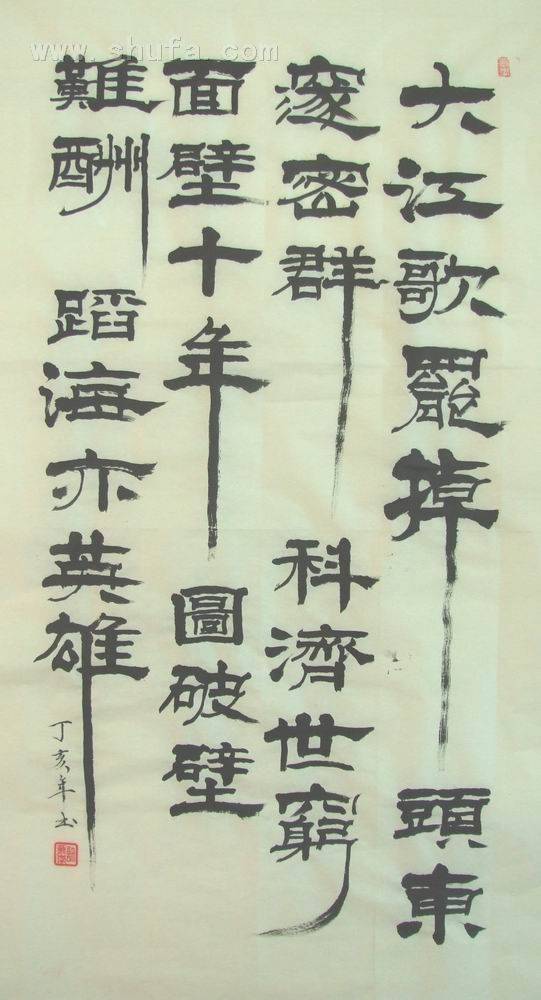 www.shufa.com
大江歌罷掉頭東
邃密群科濟世窮
面壁十年圖破壁
難酬蹈海亦英雄
丁亥年书